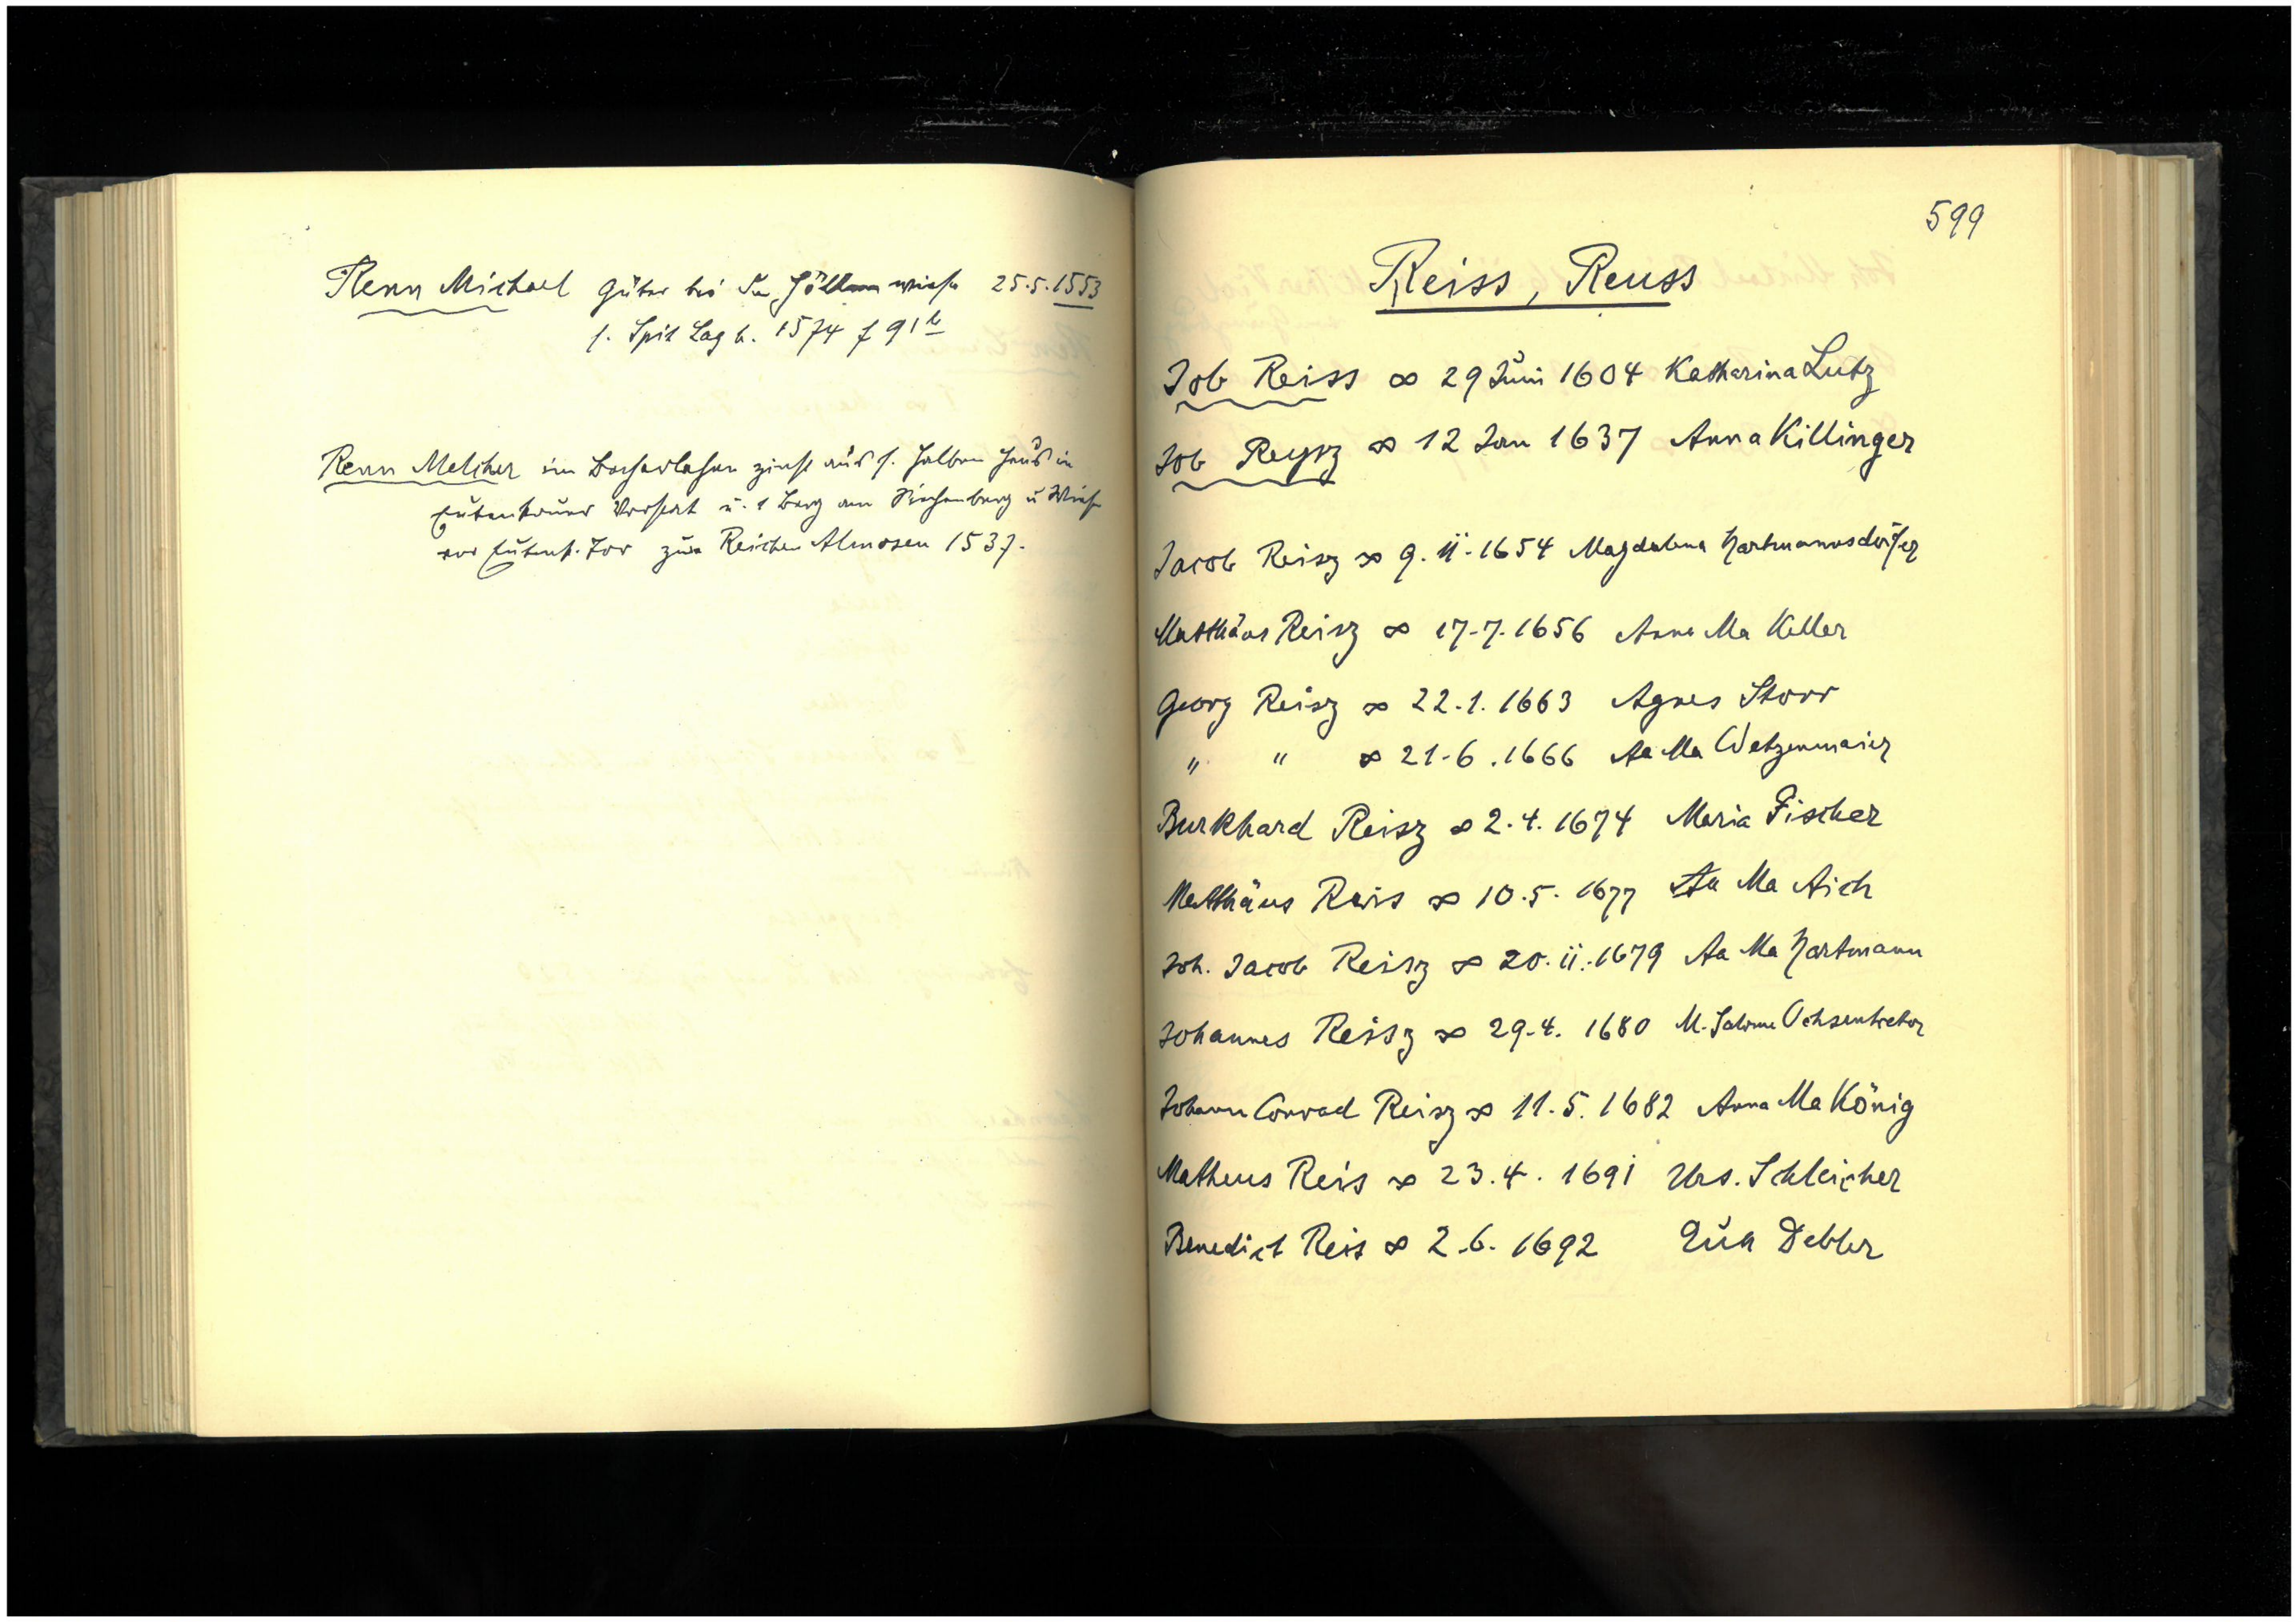 Renn Michael Güter bei der Höllenwiese 25.5.1553
s. Spit Lag b. 1574 f 91b
Renn Melcher im zinst aus s. halben Haus in
Vorstadt u. 1 Berg am u Wiese
vor Tor zum Reichen Almosen 1537.
599
Reiss, Reuss
Job Reiss ∞ 29 Juni 1604 Katharina Lutz
Job Reysz ∞ 12 Jan 1637 Anna Killinger
Jacob Reisz ∞ 9.11.1654 Magdalena Hartmannsdörfer
Matthäus Reisz ∞ 17.7.1656 Anna Ma Keller
Georg Reisz ∞ 22.1.1663 Agnes Storr
" " ∞ 21.6.1666 Aa Ma Wetzenmaier
Burkhard Reisz ∞ 2.4.1674 Maria Fischer
Matthäus Reis ∞ 10.5.1677 Aa Ma Aich
Joh. Jacob Reisz ∞ 20.11.1679 Aa Ma Hartmann
Johannes Reisz ∞ 29.4.1680 M. Salome
Johann Conrad Reisz ∞ 11.5.1682 Anna Ma König
Matheus Reis ∞ 23.4.1691 Urs. Schleicher
Benedict Reis ∞ 2.6.1692 Eva Debler